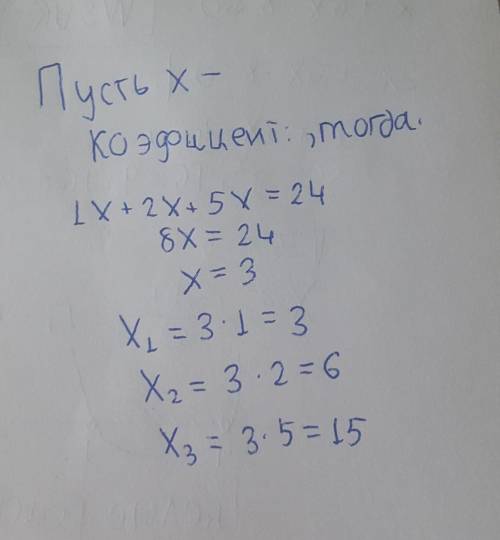 Пусть x –
коэфициент:, тогда.
1x + 2x + 5x = 24
8x = 24
x = 3
x₁ = 3 · 1 = 3
x₂ = 3 · 2 = 6
x₃ = 3 · 5 = 15